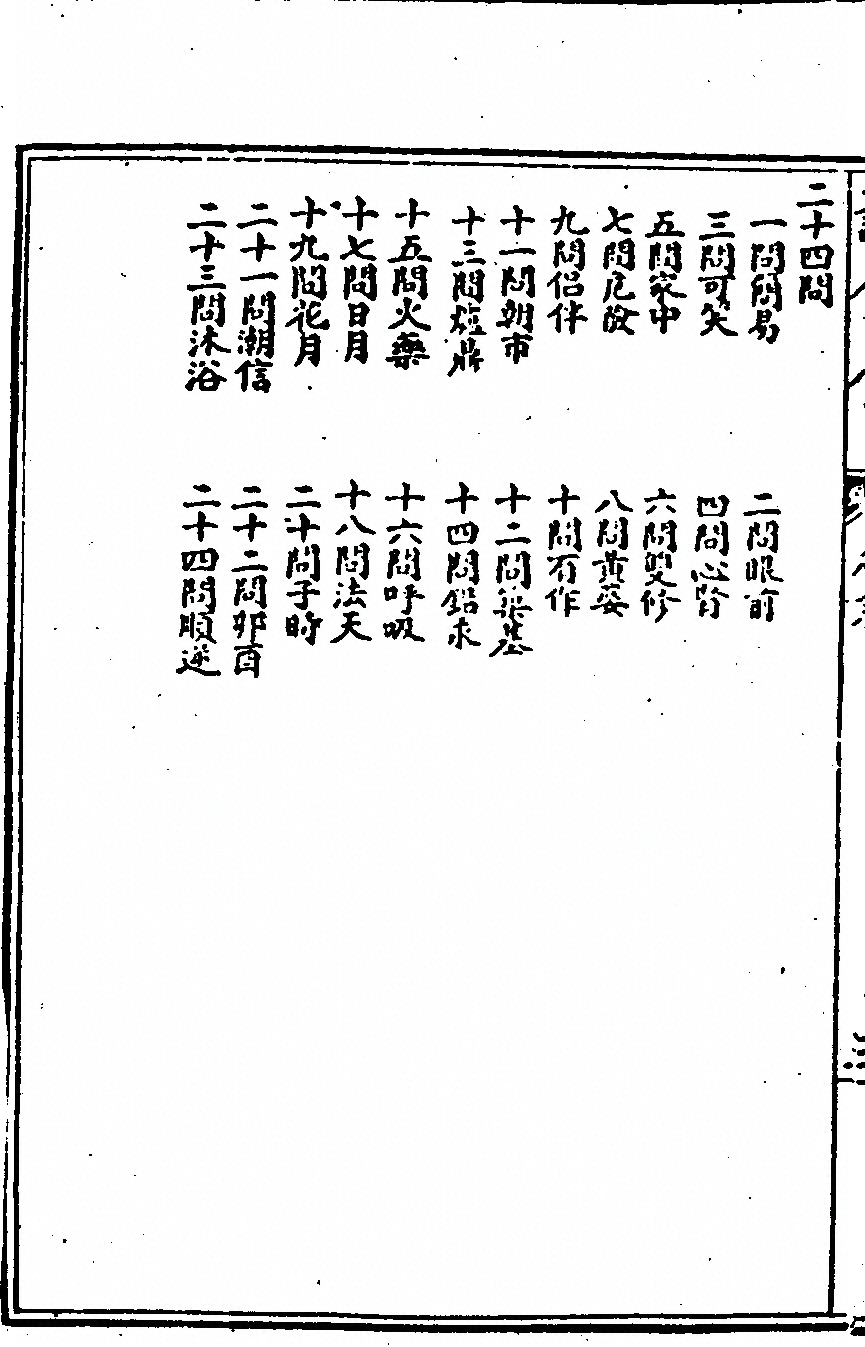 二十四問
一問簡易
二問眼前
三問可笑
四問心腎
五問家中
六問雙修
七問危險
八問黃婆
九問侶伴
十問有作
十一問朝市
十二問築基
十三問爐鼎
十四問鉛汞
十五問火藥
十六問呼吸
十七問日月
十八問法天
十九問花月
二十問子時
二十一問潮信
二十二問卯酉
二十三問沐浴
二十四問順逆